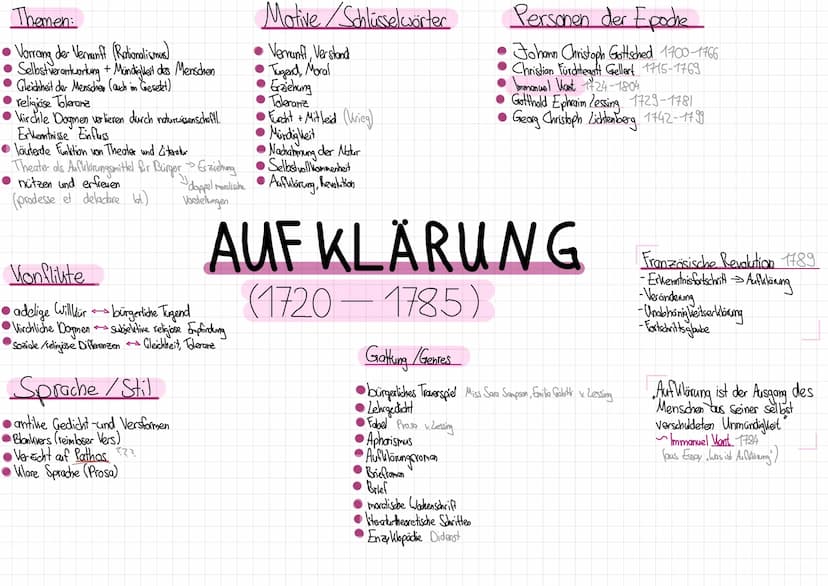 Themen:
Vorrang der Vernunft (Rationalismus)
Selbstverantwortung + Mündigkeit des Menschen
Gleichheit der Menschen (auch im Gesetz)
religiöse Toleranz
Kirchliche Dogmen verlieren durch naturwissenschaftl.
Erkenntnisse Einfluss
läuternde Funktion von Theater und Literatur
Theater als Aufklärungsmittel für Bürger → Erziehung
nützen und erfreuen
(prodesse et delectare lat.)
doppel moralische
Vorstellungen
Motive / Schlüsselwörter
Vernunft, Verstand
Tugend, Moral
Erziehung
Toleranz
Furcht + Mitleid (Krieg)
Mündigkeit
Nachahmung der Natur
Selbstvollkommenheit
Aufklärung, Revolution
Personen der Epoche
Johann Christoph Gottsched 1700-1766
Christian Fürchtegott Gellert 1715-1769
Immanuel Kant 1724-1804
Gotthold Ephraim Lessing 1729-1781
Georg Christoph Lichtenberg 1742-1799
AUFKLÄRUNG
(1720 – 1785)
Konflikte
adelige Willkür ↔ bürgerliche Tugend
Kirchliche Dogmen ↔ subjektive religiöse Empfindung
soziale/religiöse Differenzen ↔ Gleichheit, Toleranz
Französische Revolution 1789
- Erkenntnisfortschritt → Aufklärung
- Veränderung
- Unabhänigkeitserklärung
- Fortschrittsglaube
Sprache / Stil
antike Gedicht- und Versformen
Blankvers (reimloser Vers)
Verzicht auf Pathos ???
Klare Sprache (Prosa)
Gattung / Genres
bürgerliches Trauerspiel Miss Sara Sampson, Emilia Galotti v. Lessing
Lehrgedicht
Fabel Prosa v. Lessing
Aphorismus
Aufklärungsroman
Briefroman
Brief
moralische Wochenschrift
literaturtheoretische Schriften
Enzyklopädie Diderot
„Aufklärung ist der Ausgang des
Menschen aus seiner selbst
verschuldeten Unmündigkeit."
~ Immanuel Kant 1784
(aus Essay „Was ist Aufklärung")